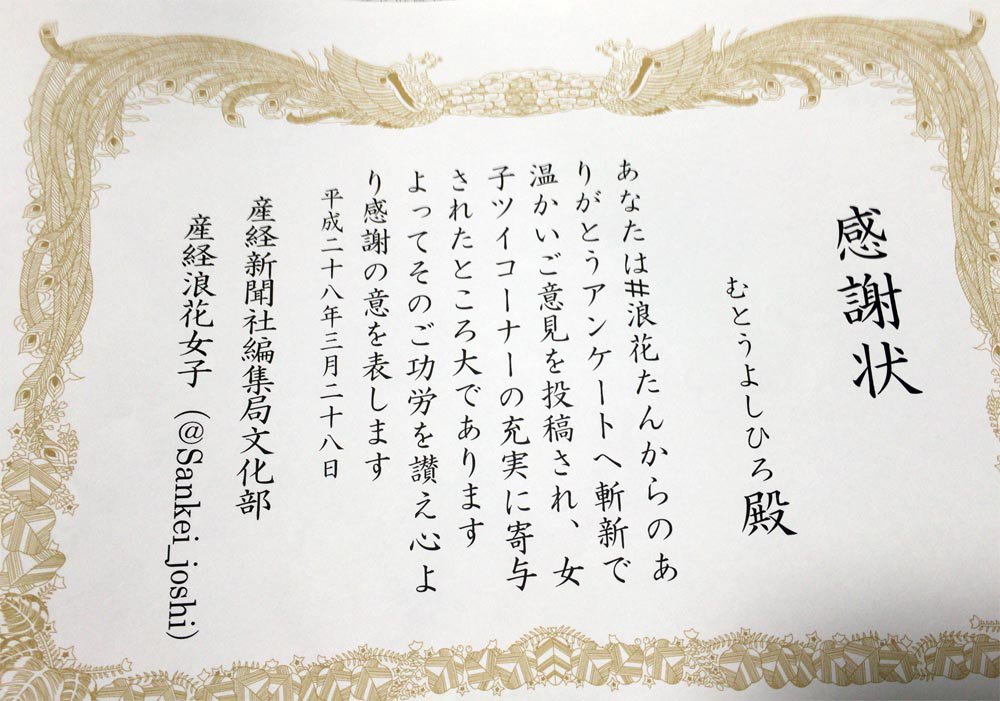 感謝状
むとうよしひろ殿
あなたは#浪花たんからのあ
りがとうアンケートへ斬新で
温かいご意見を投稿され、女
子ツイコーナーの充実に寄与
されたところ大であります
よってそのご功労を讃え心よ
り感謝の意を表します
平成二十八年三月二十八日
産経新聞社編集局文化部
産経浪花女子（@Sankei_joshi）